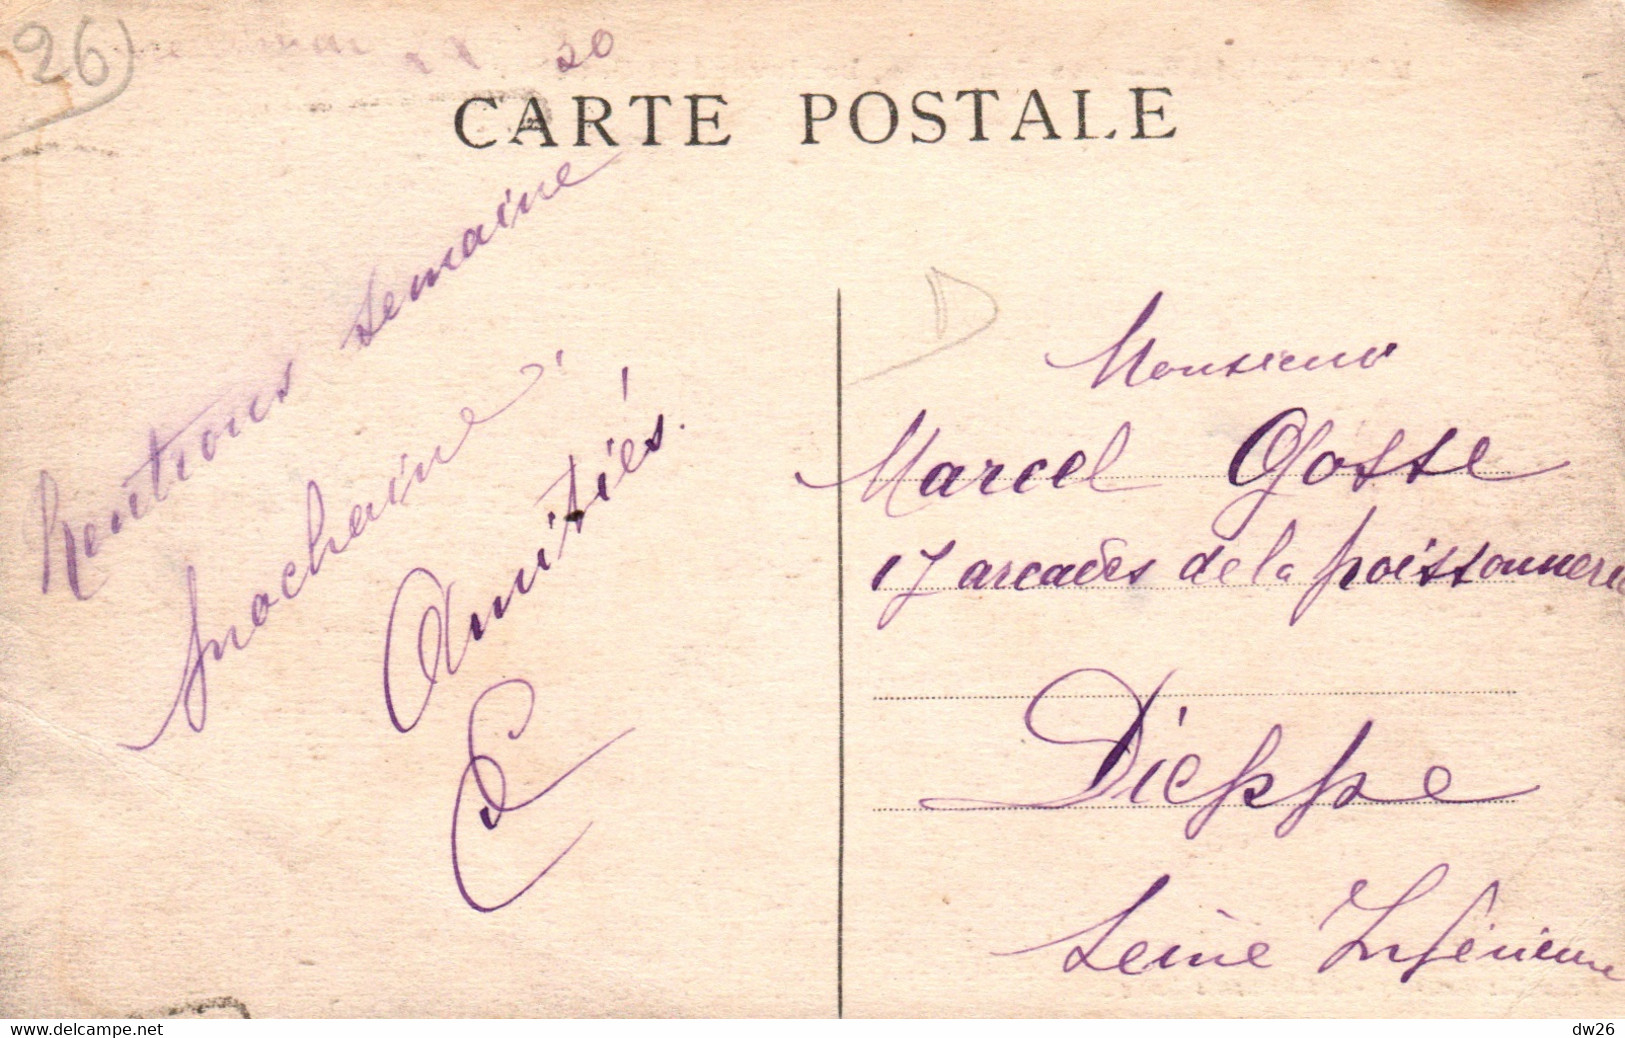 26
20
CARTE POSTALE
Rentrons semaine
prochaine.
Amitiés.
Monsieur
Marcel Gosse
17 arcades de la poissonnerie
Dieppe
Seine Inférieure
www.delcampe.net
dw26